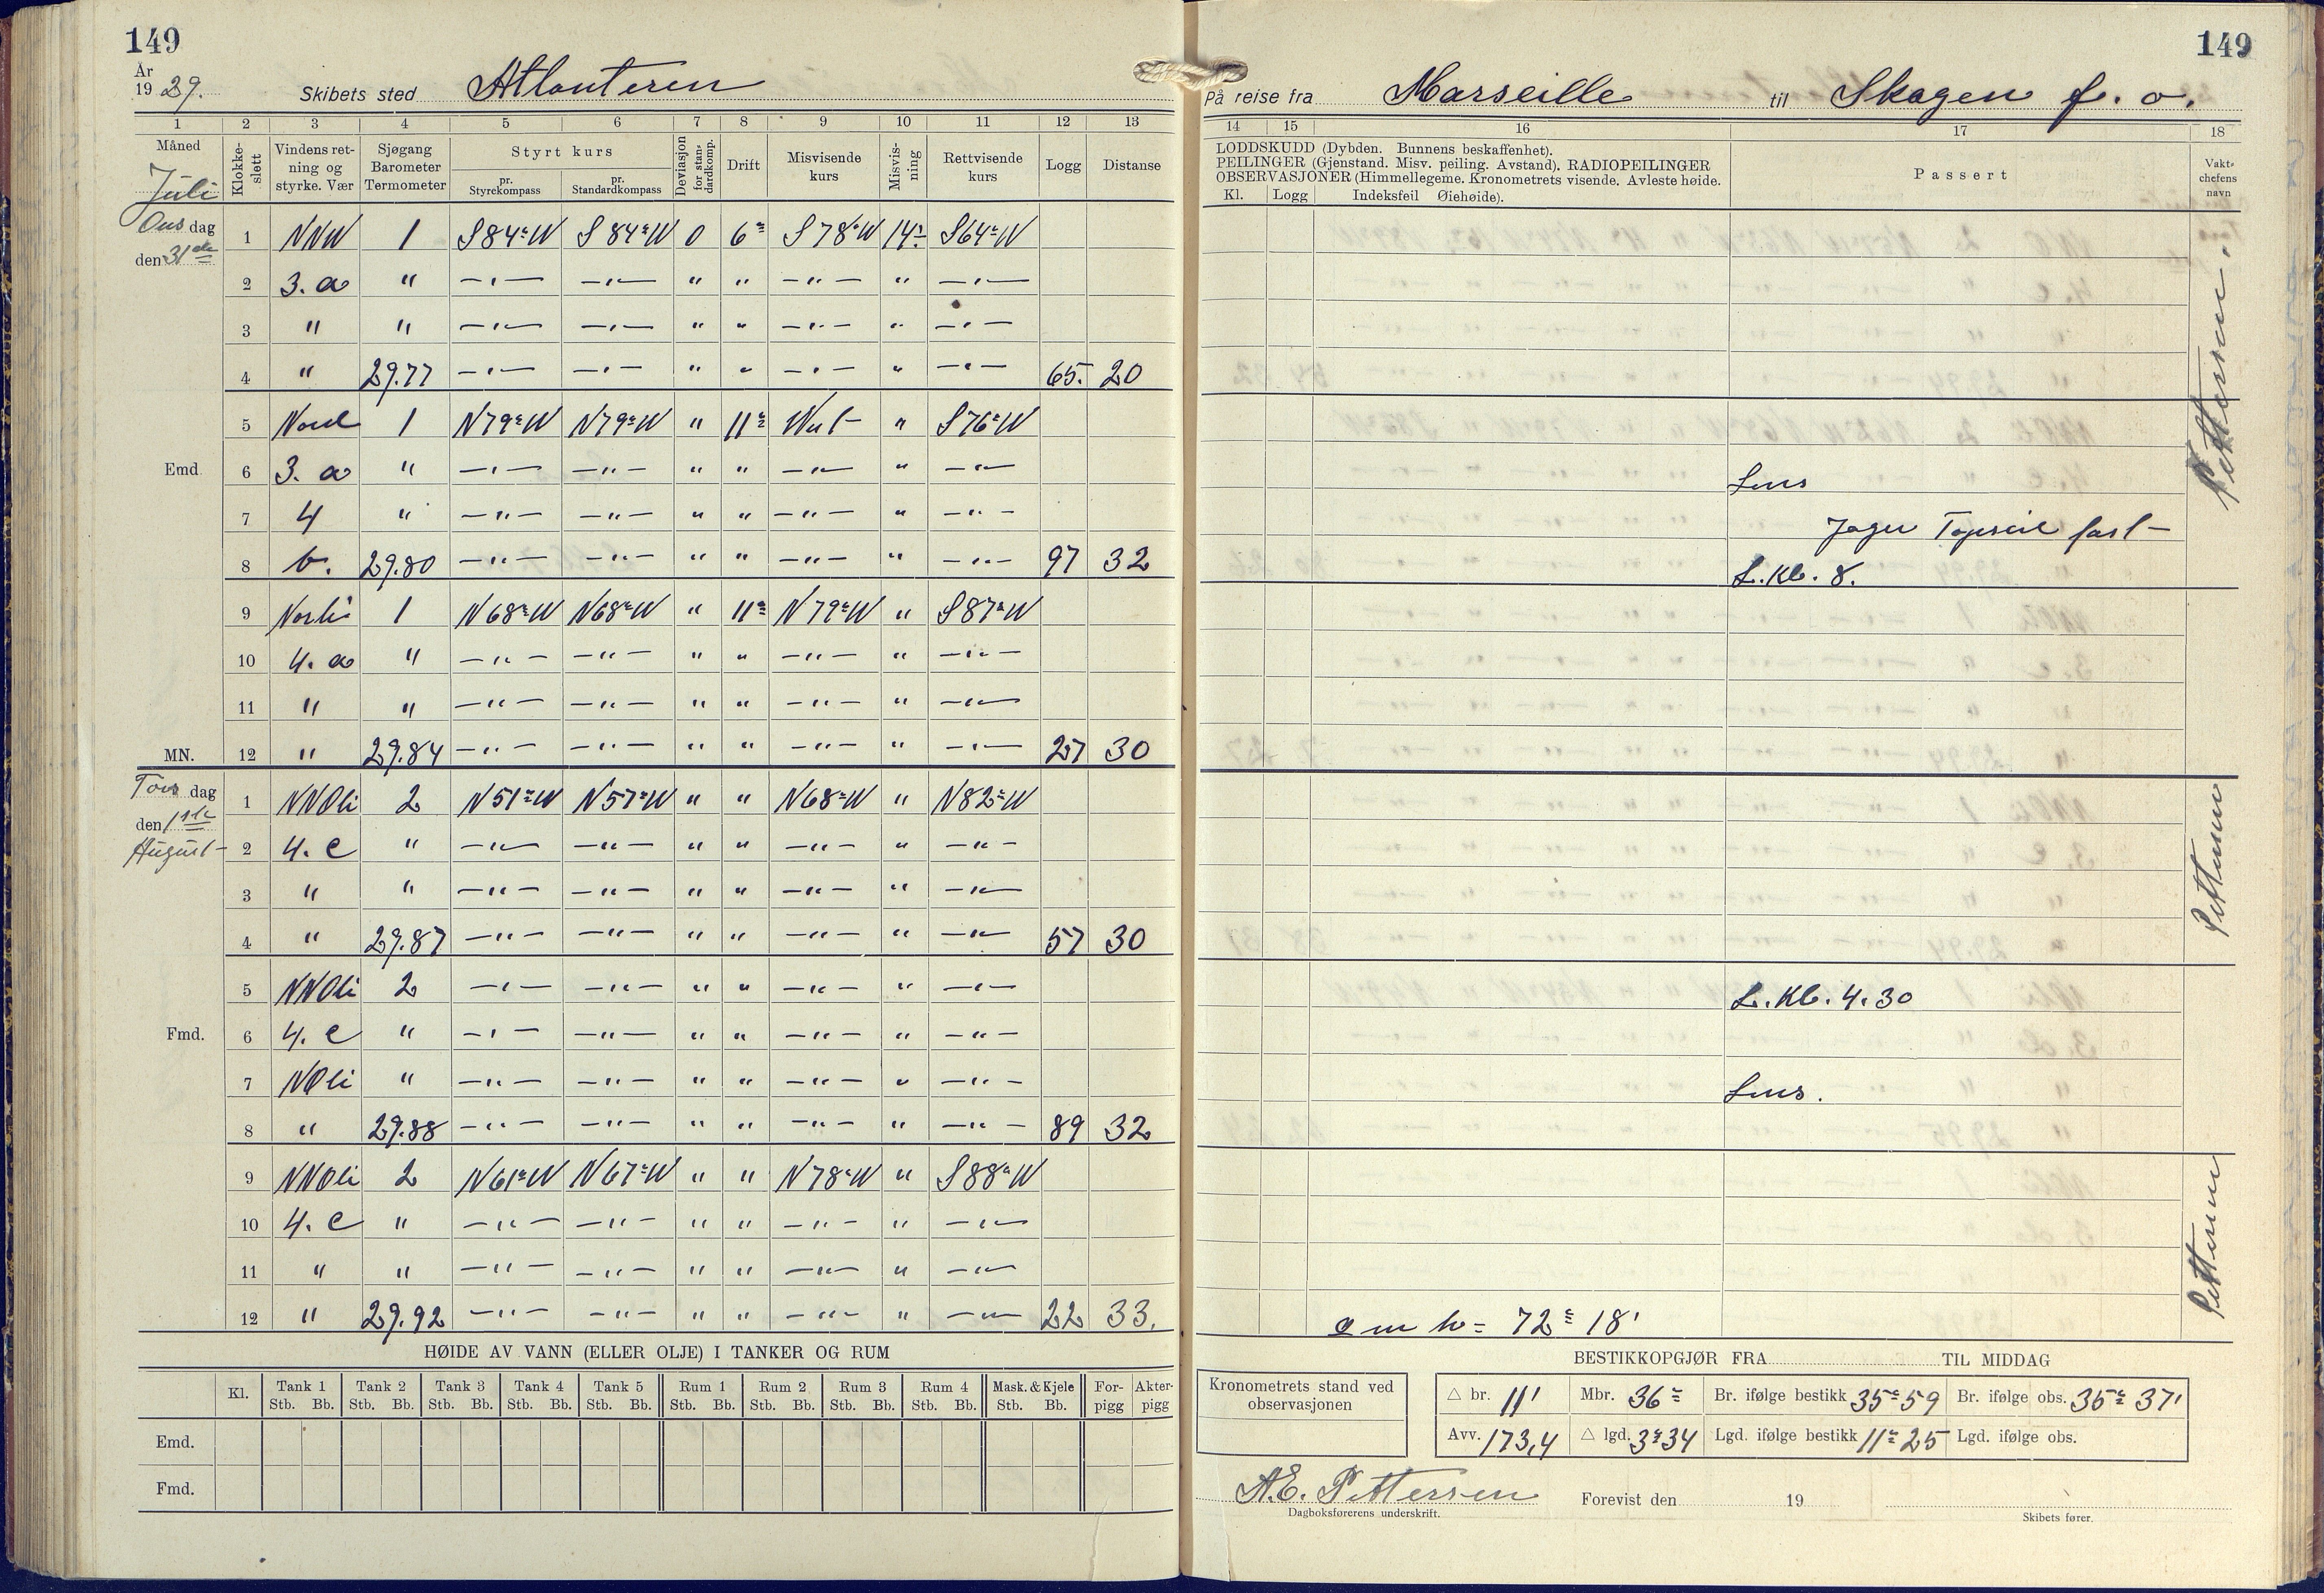 149
År
1929.
Skibets sted Atlanteren
1 2 3 4 5 6 7 8 9 10 11 12 13
Måned Juli
Klokkeslett
Vindens retning og styrke. Vær
Sjøgang Barometer Termometer
Styrt kurs
pr. Styrekompass
pr. Standardkompass
Deviasjon for standardkomp.
Drift
Misvisende kurs
Misvisning
Rettvisende kurs
Logg
Distanse
Onsdag
den 31de
1 NNW 1 S84°W S84°W 0 6° S78°W 14° S64°W
2 3. a " —"— —"— " " —"— " —"—
3 " " —"— —"— " " —"— " —"—
4 " 29.77 —"— —"— " " —"— " —"— 65. 20
5 Nord 1 N79°W N79°W " 11° West " S76°W
Emd. 6 3. a " —"— —"— " " —"— " —"—
7 4 " —"— —"— " " —"— " —"—
8 b. 29.80 —"— —"— " " —"— " —"— 97 32
9 Nortli 1 N68°W N68°W " 11° N79°W " S87°W
10 4. a " —"— —"— " " —"— " —"—
11 " " —"— —"— " " —"— " —"—
MN. 12 " 29.84 —"— —"— " " —"— " —"— 27 30
Torsdag
den 1ste
August
1 NNOli 2 N51°W N57°W " " N68°W " N82°W
2 4. c " —"— —"— " " —"— " —"—
3 " " —"— —"— " " —"— " —"—
4 " 29.87 —"— —"— " " —"— " —"— 57 30
5 NNOli 2 —"— —"— " " —"— " —"—
Fmd. 6 4. c " —"— —"— " " —"— " —"—
7 NOli " —"— —"— " " —"— " —"—
8 " 29.88 —"— —"— " " —"— " —"— 89 32
9 NNOli 2 N61°W N67°W " " N78°W " S88°W
10 4. c " —"— —"— " " —"— " —"—
11 " " —"— —"— " " —"— " —"—
12 " 29.92 —"— —"— " " —"— " —"— 22 33.
HØIDE AV VANN (ELLER OLJE) I TANKER OG RUM
Kl. Tank 1 Tank 2 Tank 3 Tank 4 Tank 5 Rum 1 Rum 2 Rum 3 Rum 4 Mask. & Kjele Forpigg Akterpigg
Stb. Bb. Stb. Bb. Stb. Bb. Stb. Bb. Stb. Bb. Stb. Bb. Stb. Bb. Stb. Bb. Stb. Bb. Stb. Bb.
Emd.
Fmd.
149
På reise fra Marseille til Skagen f. o.
14 15 16 17 18
LODDSKUDD (Dybden. Bunnens beskaffenhet).
PEILINGER (Gjenstand. Misv. peiling. Avstand). RADIOPEILINGER
OBSERVASJONER (Himmellegeme. Kronometrets visende. Avleste høide.
Kl. Logg Indeksfeil Øiehøide).
Passert
Vaktchefens navn
Pettersen.
Lens
Jager Topseil fast
L.Kl. 8.
Pettersen
L.Kl. 4.30
Lens.
Pettersen
m h = 72° 18'
BESTIKKOPGJØR FRA TIL MIDDAG
Kronometrets stand ved observasjonen
△ br. 11' Mbr. 36° Br. ifølge bestikk 35° 59 Br. ifølge obs. 35° 37'
Avv. 173,4 △ lgd. 3° 34 Lgd. ifølge bestikk 11° 25 Lgd. ifølge obs.
A.E. Pettersen Forevist den 19
Dagboksførerens underskrift. Skibets fører.